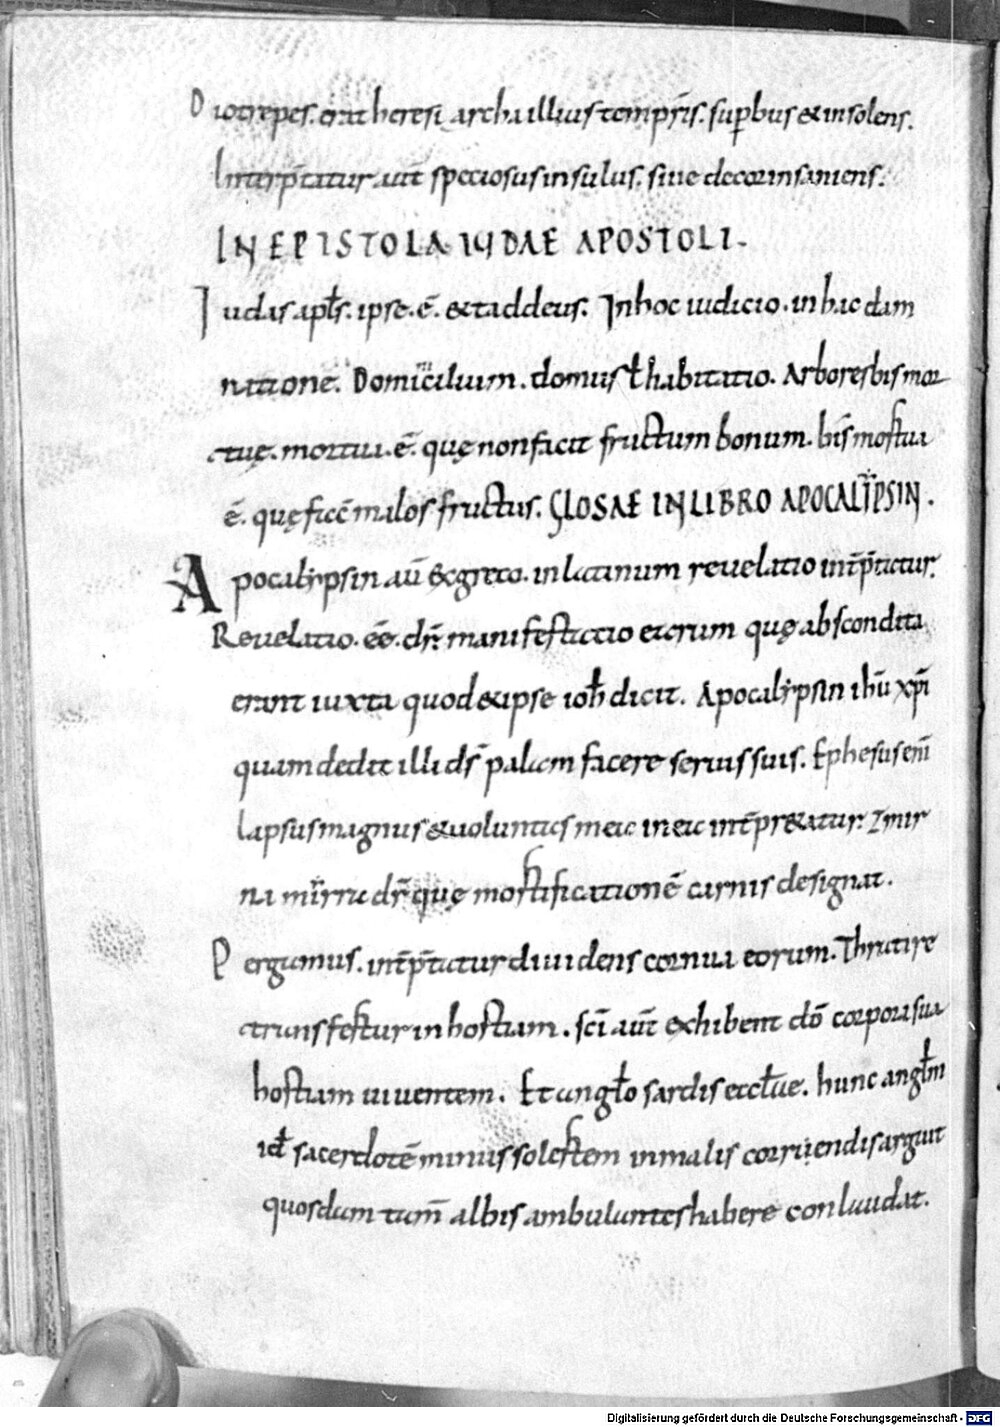 Diotrepes. erat heresi archa illius temp̄ris. sup̱bus & insolens.
Interp̄tatur aut̄ speciosus insulus. siue decor insaniens.
IN EPISTOLA IUDAE APOSTOLI.
Iudas apl̄s. ipse. ē. & taddeus. In hoc iudicio. in hac dam
natione. Domicilium. domus ł habitatio. Arbores bis mor
tuę. mortua. ē. quę non facit fructum bonum. bis mortua
ē. quę fic̄ malos fructus. GLOSAE IN LIBRO APOCALIPSIN.
Apocalipsin aū ex greco. in latinum reuelatio int̄p̄tatur.
Reuelatio. ēē. dr̄ manifestatio eorum quę abscondita
erant iuxta quod & ipse ioh̄ dicit. Apocalipsin ih̄u xp̄i
quam dedit illi ds̄ palam facere seruis suis. Ephesus eni
lapsus magnus & uoluntas mea in ea int̄pr&atur. Zmir
na mirra dr̄ quę mortificationē carnis designat.
Pergamus. int̄p̄tatur diuidens cornua eorum. Thiatire
transfertur in hostiam. sc̄i aut̄ exhibent dō corpora sua
hostiam uiuentem. Et anglo sardis eccłae. hunc angłm
id̄ sacerdotē minus solertem in malis corriendis arguit
quosdam tam̄ albis ambulantes habere conlaudat.
Digitalisierung gefördert durch die Deutsche Forschungsgemeinschaft - DFG